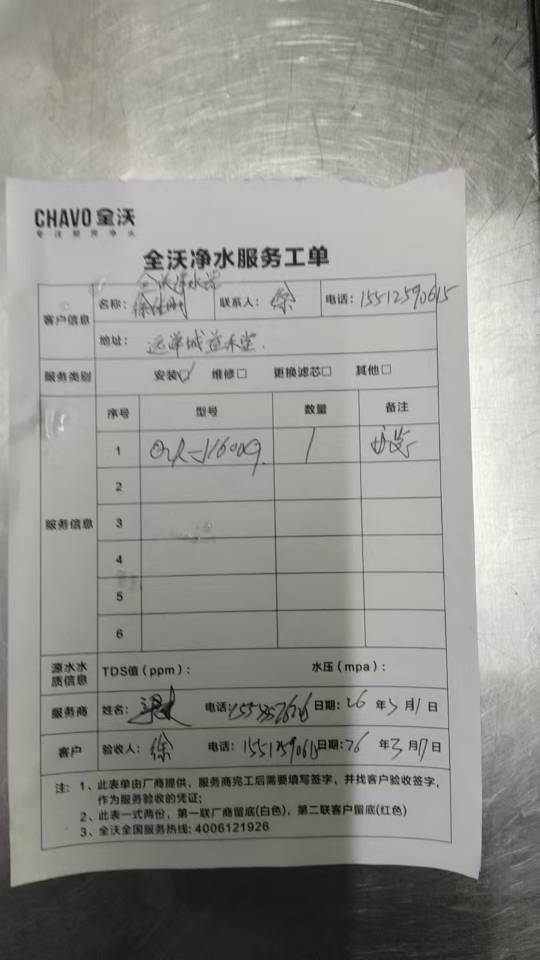 CHAVO 全沃
专注厨房净水
全沃净水服务工单
全沃净水器
客户信息 名称: 联系人: 徐 电话: 15512590615
地址: 远洋城
服务类别 安装☑ 维修□ 更换滤芯□ 其他□
服务信息 序号 型号 数量 备注
1 1
2
3
4
5
6
源水水质信息 TDS值(ppm): 水压(mpa):
服务商 姓名: 电话: 日期: 26 年 3 月 日
客户 验收人: 徐 电话: 日期: 26 年 3 月 日
注: 1、此表单由厂商提供,服务商完工后需要填写签字,并找客户验收签字,
作为服务验收的凭证;
2、此表一式两份,第一联厂商留底(白色),第二联客户留底(红色)
3、全沃全国服务热线: 4006121926